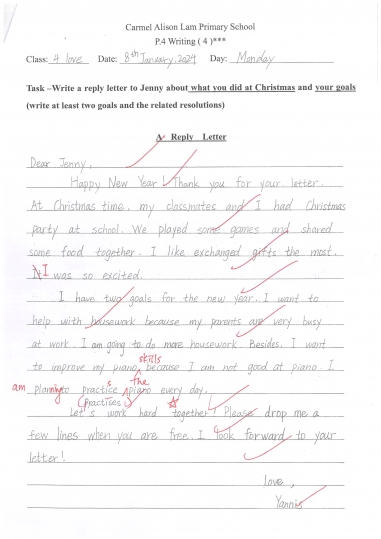 Carmel Alison Lam Primary School
P.4 Writing ( 4 )***
Class: 4 love Date: 8th January, 2024 Day: Monday
Task –Write a reply letter to Jenny about what you did at Christmas and your goals
(write at least two goals and the related resolutions)
A Reply Letter
Dear Jenny,
Happy New Year! Thank you for your letter.
At Christmas time, my classmates and I had Christmas
party at school. We played some games and shared
some food together. I like exchanged gifts the most.
I was so excited.
I have two goals for the new year. I want to
help with housework because my parents are very busy
at work. I am going to do more housework. Besides, I want
skills
to improve my piano because I am not good at piano. I
am planning to practise the piano every day.
(practises)
Let's work hard together! Please drop me a
few lines when you are free. I look forward to your
letter!
Love,
Yannis